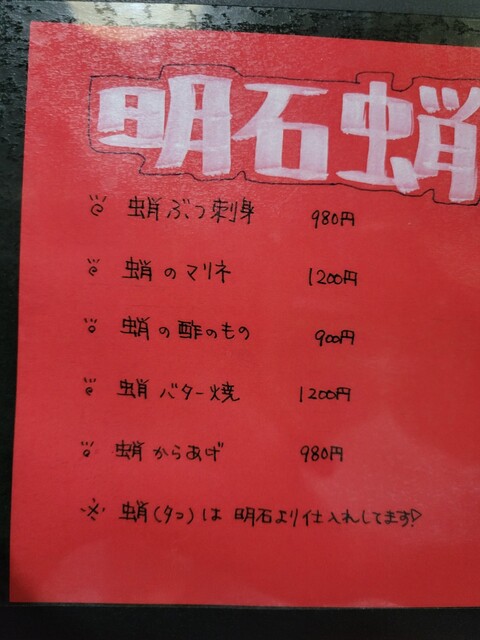 明石蛸
蛸ぶつ刺身 980円
蛸のマリネ 1200円
蛸の酢のもの 900円
蛸バター焼 1200円
蛸からあげ 980円
※蛸(タコ)は明石より仕入れてます!